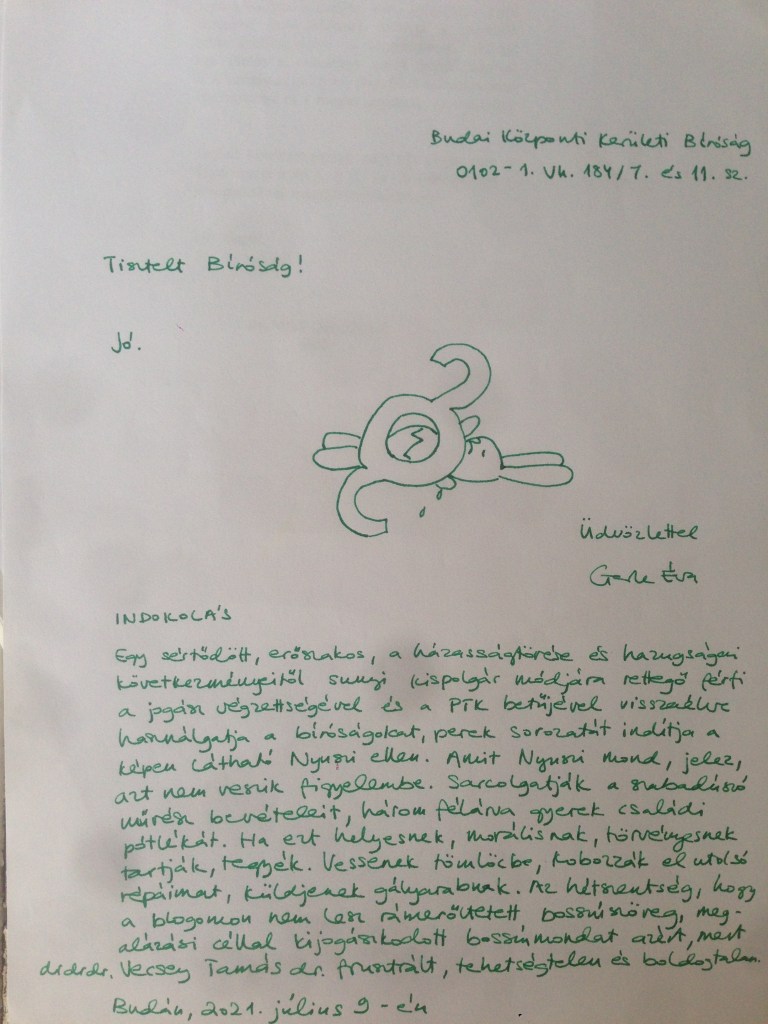 Budai Központi Kerületi Bíróság
0102-1. Vh. 184/7. és 11. sz.
Tisztelt Bíróság!
Jó.
Üdvözlettel
Gerle Éva
INDOKOLÁS
Egy sértődött, erőszakos, a házasságtörése és hazugságai
következményeitől sunyi kispolgár módjára rettegő férfi
a jogász végzettségével és a PTK betűjével visszaélve
használgatja a bíróságokat, perek sorozatát indítja a
képen látható Nyuszi ellen. Amit Nyuszi mond, jelez,
azt nem veszik figyelembe. Sarcolgatják a szabadúszó
művész bevételeit, három félárva gyerek családi
pótlékát. Ha ezt helyesnek, morálisnak, törvényesnek
tartják, tegyék. Vessenek tömlöcbe, kobozzák el utolsó
répáimat, küldjenek gályarabnak. Az hétszentség, hogy
a blogomon nem lesz rámerőltetett bosszúszöveg, meg-
alázási céllal kijogászkodott bosszúmondat azért, mert
drdrdr. Vecsey Tamás dr. frusztrált, tehetségtelen és boldogtalan.
Budán, 2021. július 9-én